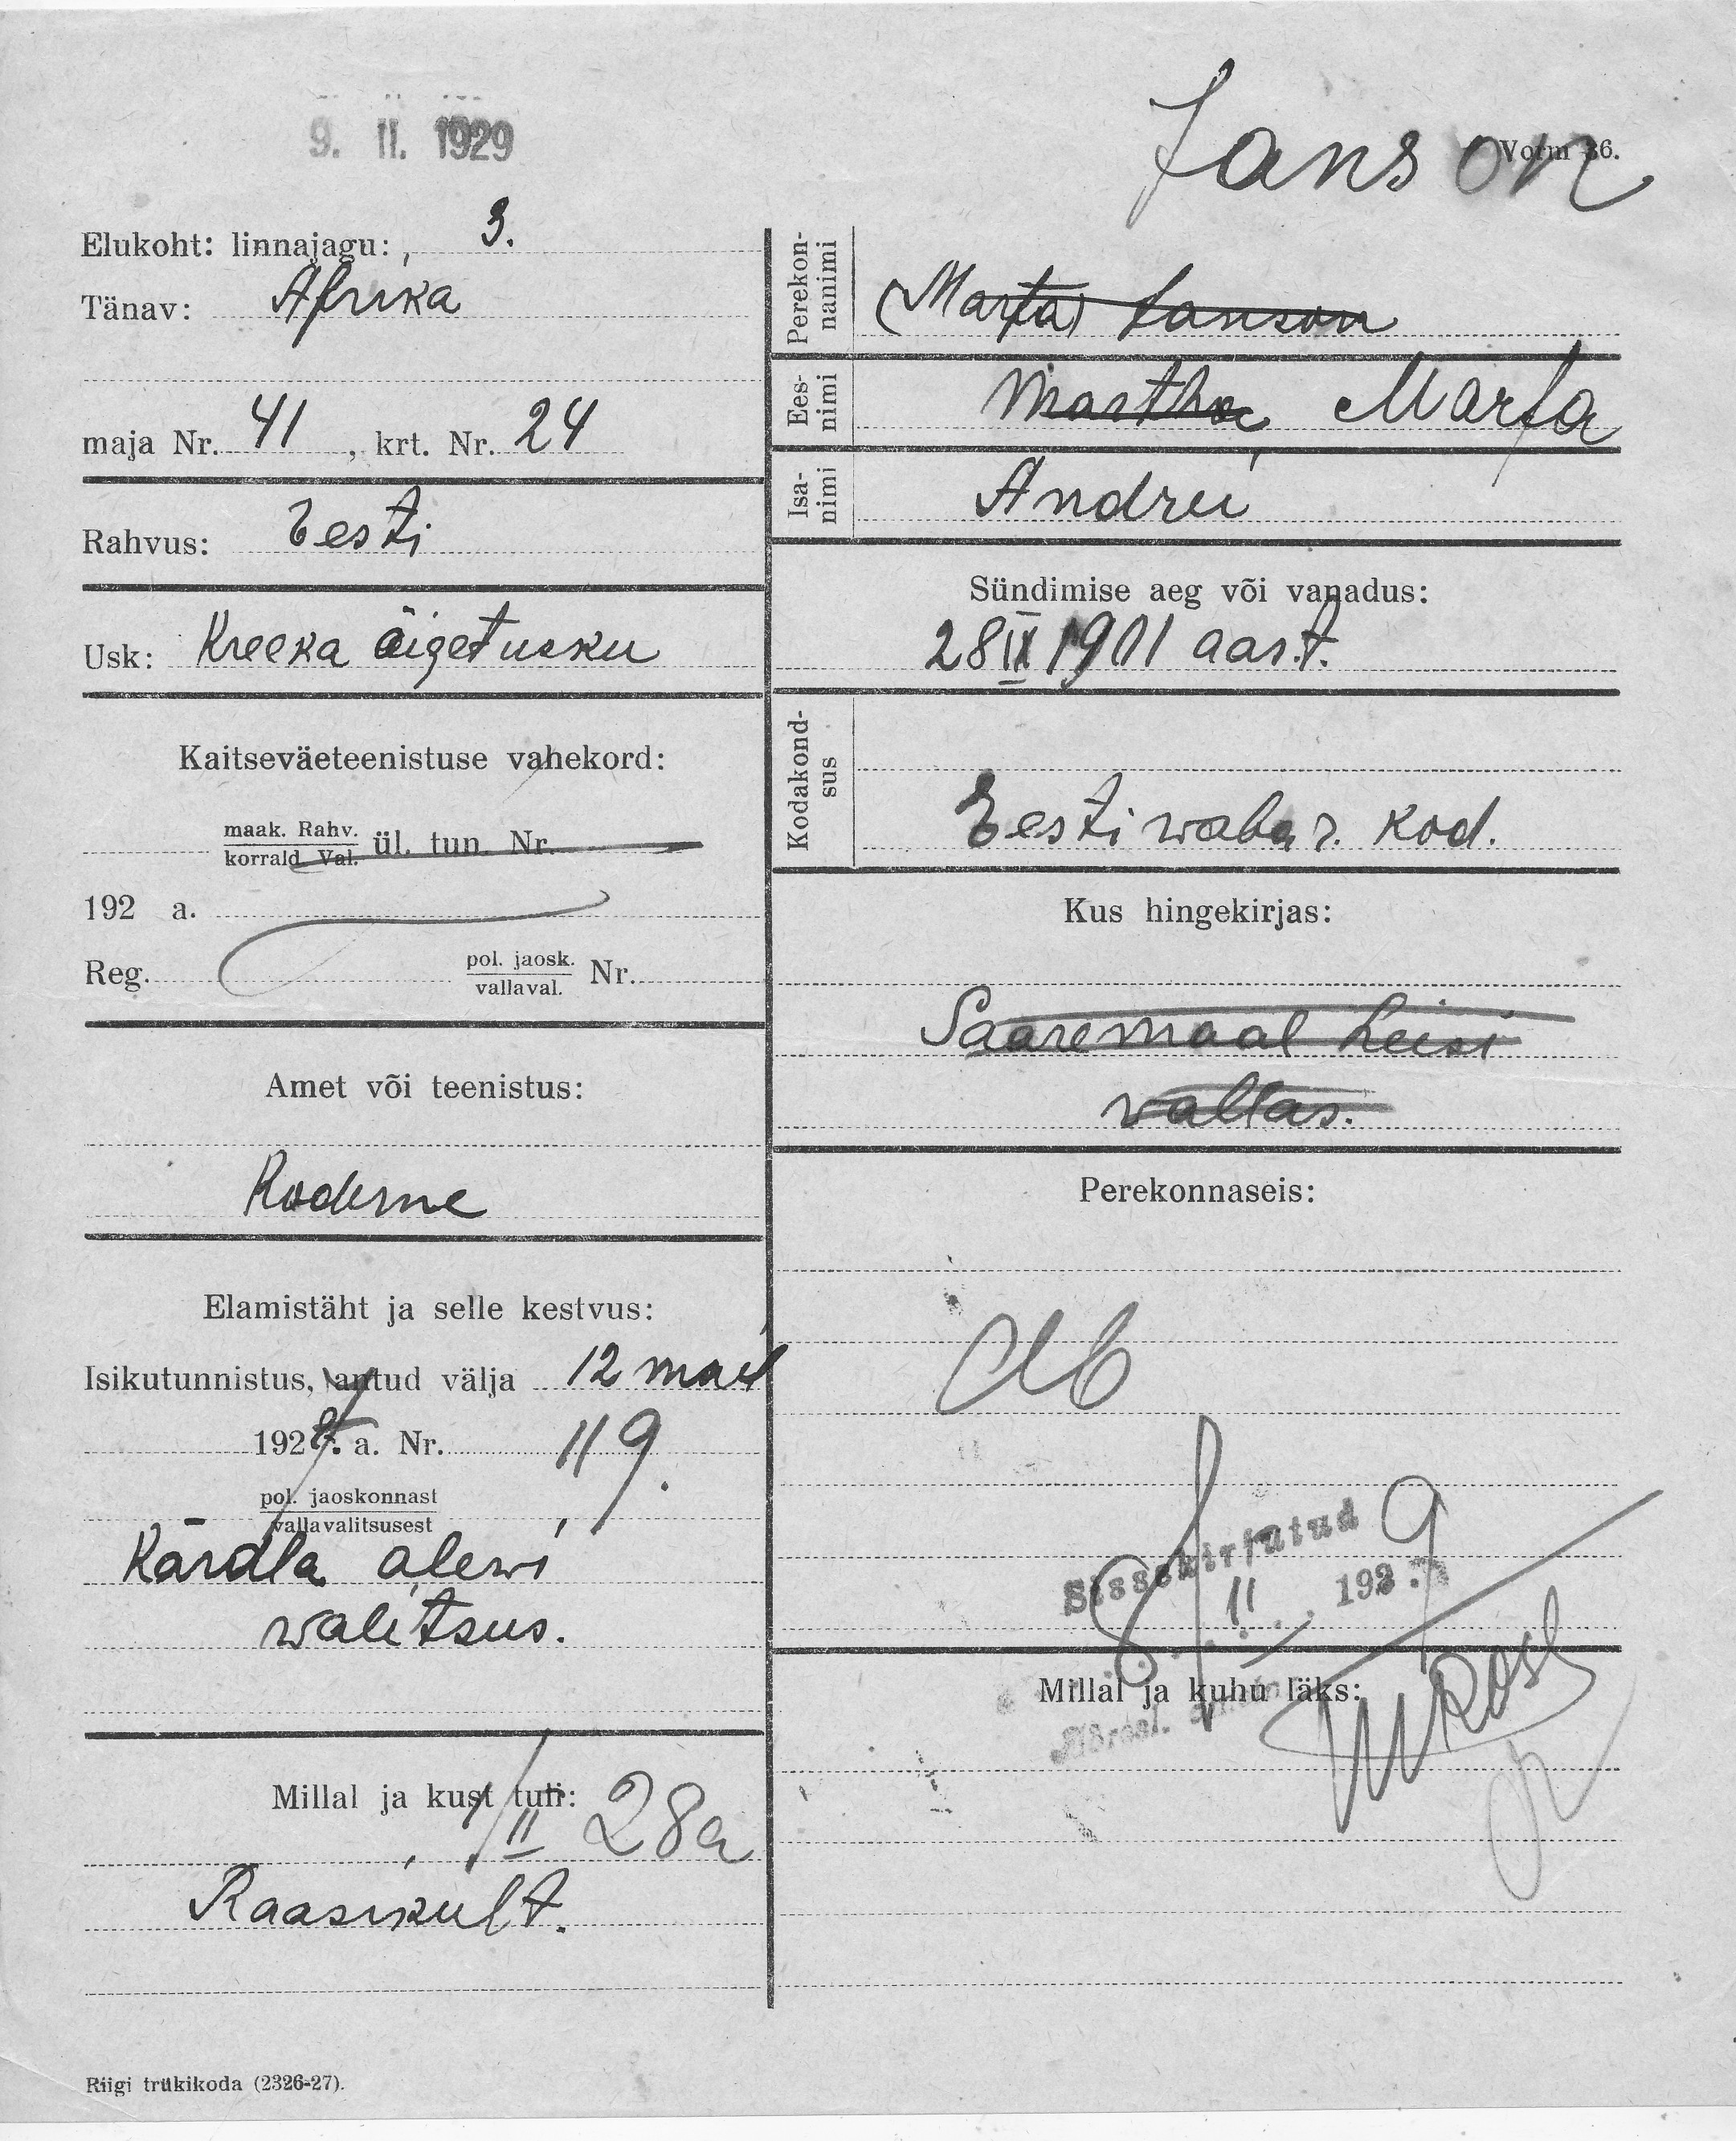 9. II. 1929
Janson
Vorm 36.
Elukoht: linnajagu: 3.
Tänav: Afrika
maja Nr. 41, krt. Nr. 24
Rahvus: Eesti
Usk: Kreeka õigetusku
Kaitseväeteenistuse vahekord:
maak. Rahv.
korrald. Val. ül. tun. Nr.
192 a.
Reg. pol. jaosk.
vallaval. Nr.
Amet või teenistus:
Koderne
Elamistäht ja selle kestvus:
Isikutunnistus, antud välja 12 mail
192 a. Nr. 119.
pol. jaoskonnast
vallavalitsusest
Kärdla alewi
walitsus.
Millal ja kust tuli:
1/II 28a
Raasikult.
Riigi trükikoda (2326-27).
Perekon-
nanimi
(Marta) Janson
Ees-
nimi
Martha, Marta
Isa-
nimi
Andrei
Sündimise aeg või vanadus:
28 IX 1901 aast.
Kodakond-
sus
Eesti waba r. kod.
Kus hingekirjas:
Saaremaal Leisi
wallas.
Perekonnaseis:
Sissekirjutud 9
II 192
Millal ja kuhu läks: